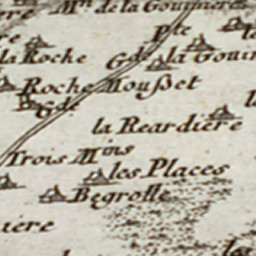 Mⁿ de la Gouiniere
ere
la Roche
Pte
Gde la Gouin
Roche Mousset
Gde
la Reardiere
Trois Mins
les Places
Begrolle
iere